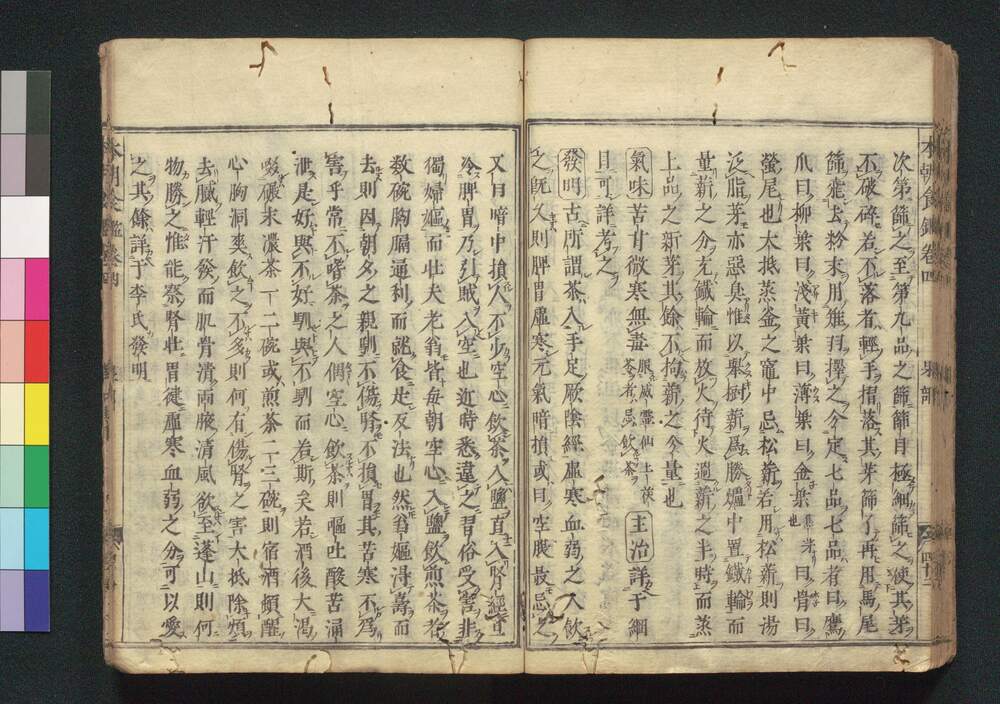 本朝食鑑卷四　　果部　　四十二
次第篩之至第九品之篩篩目極細篩之使其芽
不破碎若不落者輕手揩落其芽篩了再用馬尾
篩篩去粉末用雉羽擇之今定七品七品者曰鷹
爪曰柳葉曰淺黃葉曰薄葉曰金葉也曰骨曰
螢尾也大抵蒸釜之竈中忌松薪若用松薪則湯
泛脂芽亦惡臭惟以櫟樹薪爲勝爐中置鐵輪而
量薪之分充鐵輪而放火待火過薪之半時而蒸
上品之新芽其餘不拘薪之分量也
氣味苦甘微寒無毒服威靈仙土茯苓者忌飲茶主治詳于綱
目可詳考之
發明古所謂茶入手足厥陰經虛寒血弱之人飲
之既久則脾胃虛寒元氣暗損或曰空腹最忌之
又曰暗中損人不少空心飲茶入鹽直入腎經且
冷脾胃乃引賊入空也近時悉違之習俗受害非
獨婦嫗而壯夫老翁皆每朝空心入鹽飲煎茶者
數碗胸膈通利而能食是反法也然翁嫗得壽而
去則因朝夕之親馴不傷腎不損胃其苦寒不爲
害乎常不嗜茶之人偶空心飲茶則嘔吐酸苦涌
泄是好與不好馴與不馴而若斯矣若酒後大渴
啜碾末濃茶一二碗或煎茶二三碗則宿酒頓醒
心胸洞爽飲之不多則何有傷腎之害大抵除煩
去膩輕汗發而肌骨清兩腋清風欲至蓬山則何
物勝之惟能察腎壯胃健虛寒血弱之分可以愛
之其餘詳于李氏發明